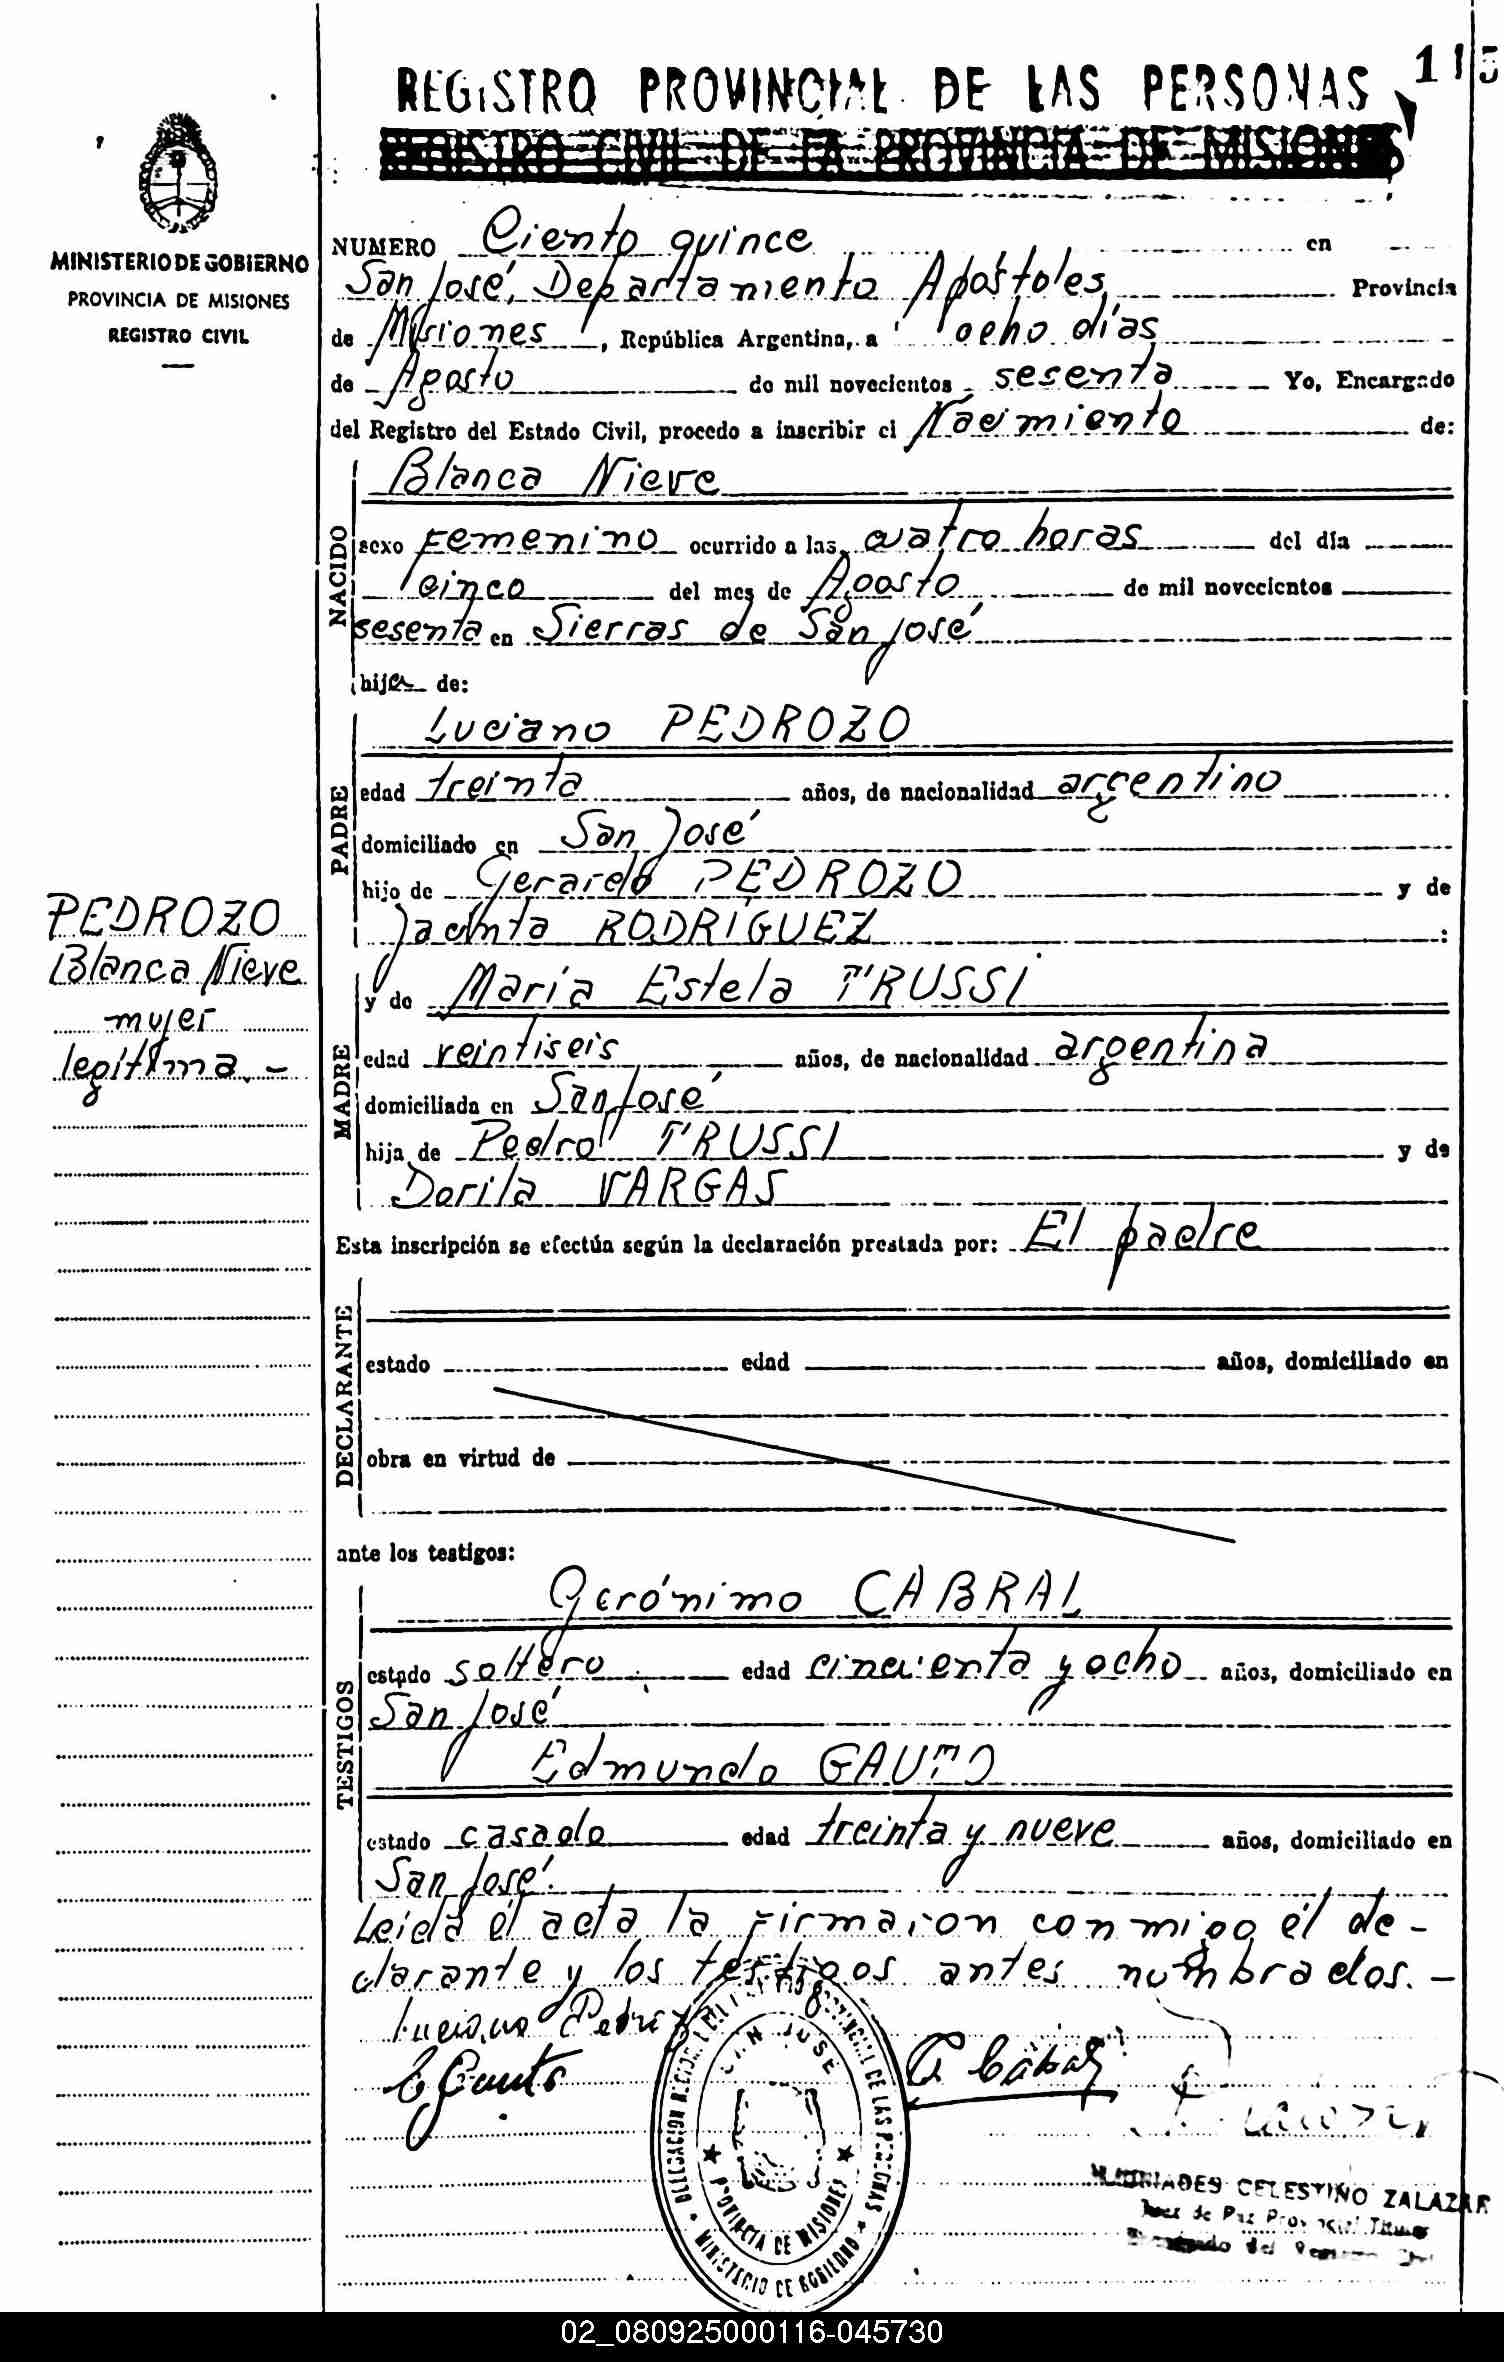 115
REGISTRO PROVINCIAL DE LAS PERSONAS
REGISTRO CIVIL DE LA PROVINCIA DE MISIONES
MINISTERIO DE GOBIERNO
PROVINCIA DE MISIONES
REGISTRO CIVIL
NUMERO Ciento quince en
San José, Departamento Apóstoles, Provincia
de Misiones, República Argentina, a ocho días
de Agosto de mil novecientos sesenta Yo, Encargado
del Registro del Estado Civil, procedo a inscribir el Nacimiento de:
NACIDO
Blanca Nieve
sexo Femenino ocurrido a las cuatro horas del día
cinco del mes de Agosto de mil novecientos
sesenta en Sierras de San José
hija de:
PADRE
Luciano PEDROZO
edad treinta años, de nacionalidad argentino
domiciliado en San José
hijo de Gerardo PEDROZO y de
Jacinta RODRÍGUEZ
PEDROZO
Blanca Nieve
mujer
legítima.-
MADRE
y de María Estela TRUSSI
edad veintiseis años, de nacionalidad argentina
domiciliada en San José
hija de Pedro TRUSSI y de
Dorila VARGAS
Esta inscripción se efectúa según la declaración prestada por: El padre
DECLARANTE
estado edad años, domiciliado en
obra en virtud de
ante los testigos:
TESTIGOS
Gerónimo CABRAL
estado soltero edad cincuenta y ocho años, domiciliado en
San José
Edmundo GAUTO
estado casado edad treinta y nueve años, domiciliado en
San José.
Leída él acta la firmaron conmigo él de-
clarante y los testigos antes nombrados.-
Luciano Pedrozo
E Gauto
G Cabral
DELEGACION REGISTRO PROVINCIAL DE LAS PERSONAS
SAN JOSE
PROVINCIA DE MISIONES
MINISTERIO DE GOBIERNO
CELESTINO ZALAZAR
Juez de Paz Provincial Titular
Encargado del Registro Civil
02_080925000116-045730